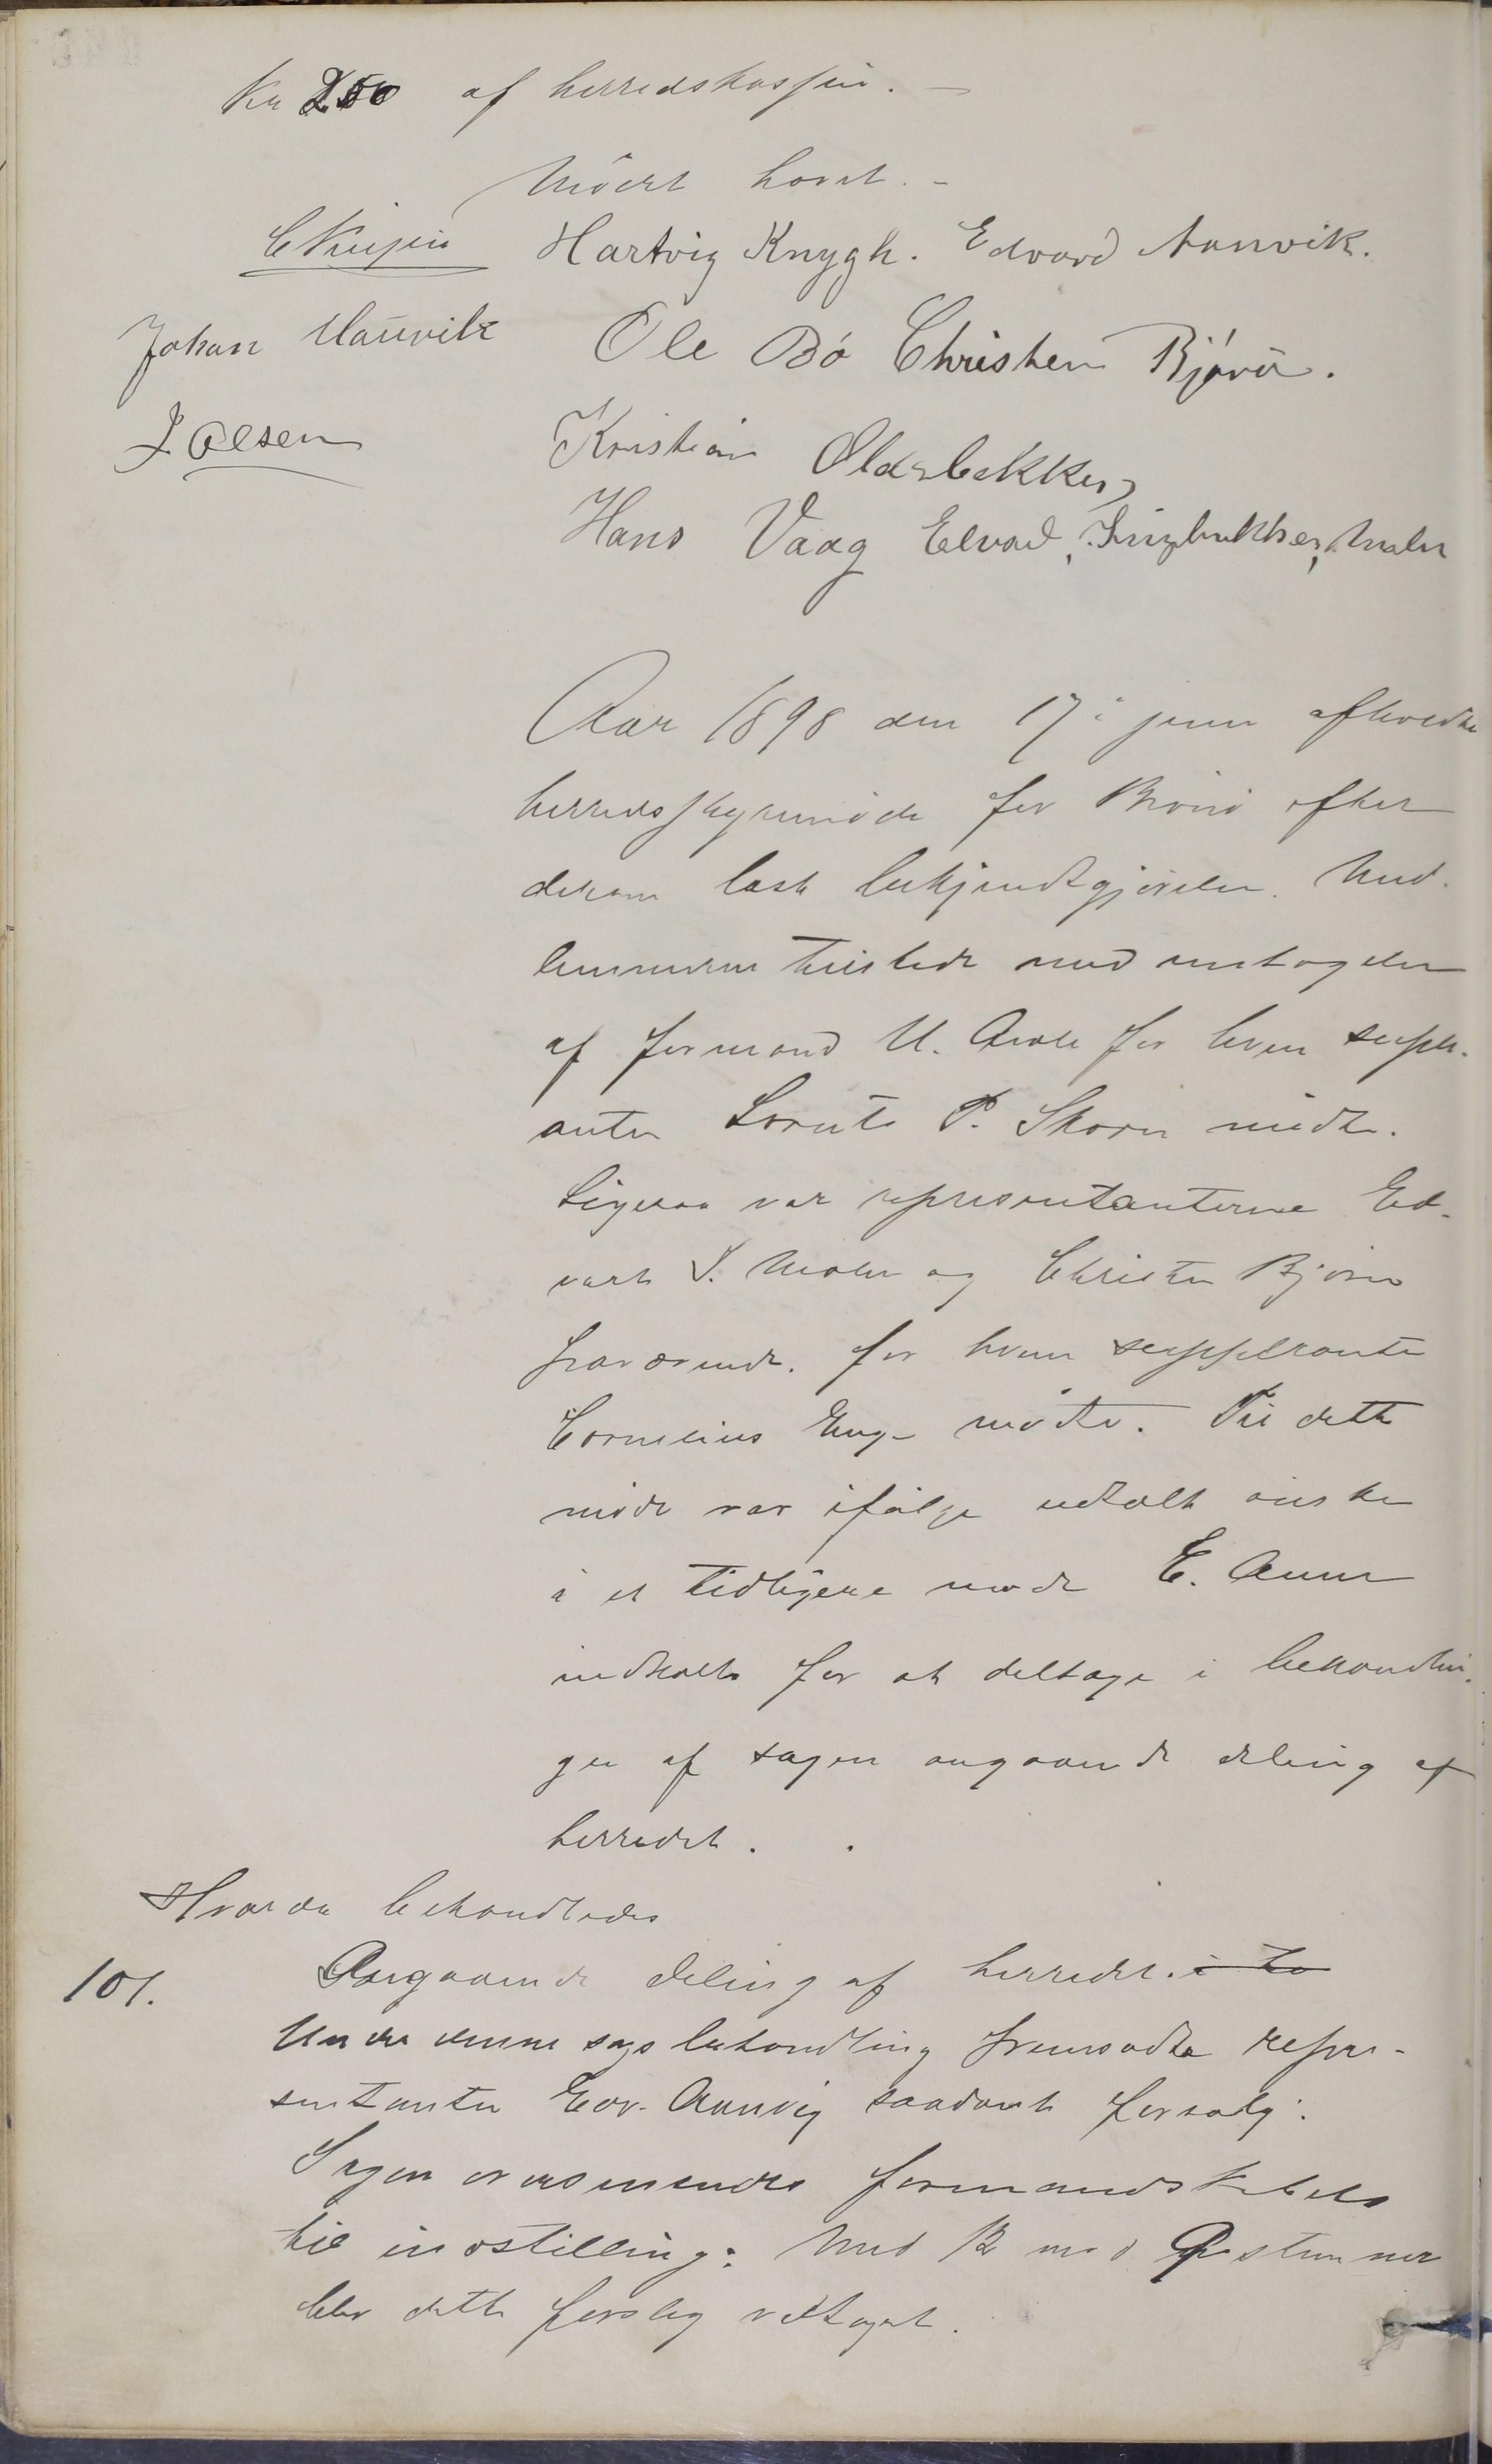 Kr 250 af herredskassen. —
Mödet hævet. –
Hartvig Knygh. Edvard Aanvik.
Johan Mauvik Ole Bö Christen Björü.
J Olsen
Kristian Oldrbakken
Hans Vaag Edvard Maler
Aar 1898 den 17de juni afholdtes
herredsstyremöde for Brönö efter
derom læst bekjendtgjörelse. Med-
lemmerne tilstede med undtagelse
af formand for hvem suple-
anten Lornts P. Skoren mödte.
Ligesaa var representanterne Ed-
vart J. Moler og Christen Björu
fraværende, for hvem suppleanten
Cornelius Eng mödte. Til dette
möde var ifölge udtalt önske
i et tidligere möde E. Aune
indkaldt for at deltage i behandlin-
gen af sagen angaaende deling af
herredet.
Hvorda behandledes
101. Angaaende deling af herredet. i to
Under denne sags behandling fremsadte repre-
sentanten Edv. Aanvig saadant forslag:
Sagen oversendes formandskabets
til indstilling. Med 12 mod 9 stemmer
blev dette forslag vedtaget.